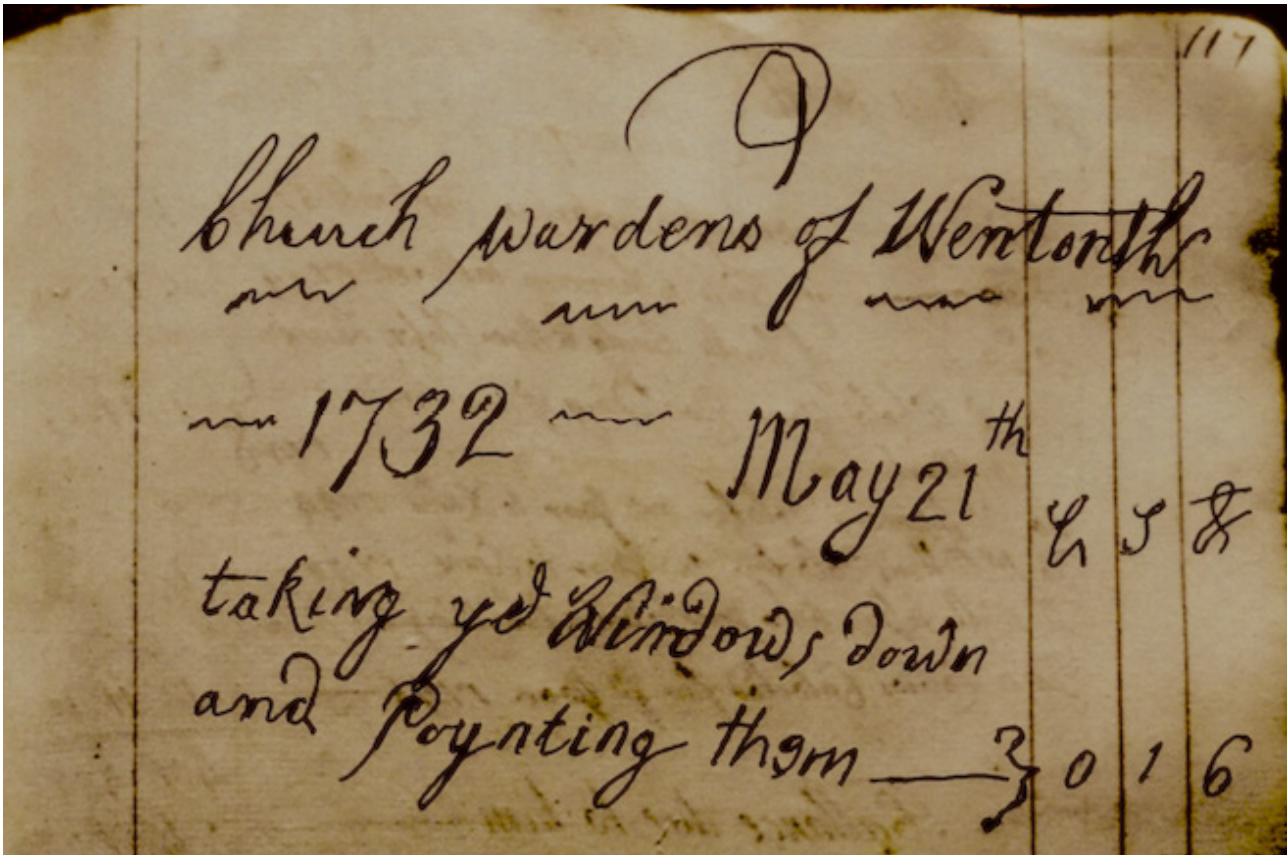 117
Church wardens of Wentonth
1732 May 21th
£ s d
taking ye Windows down
and Poynting them — } 0 1 6